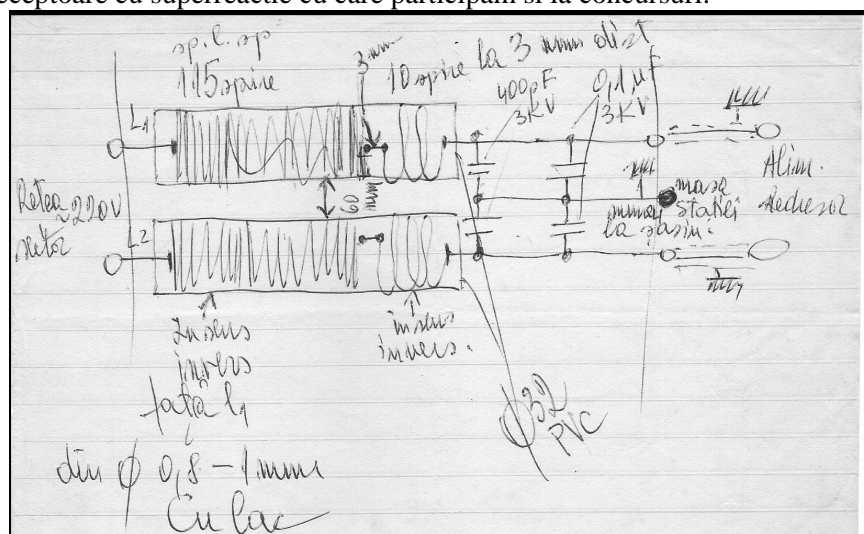 receptoare cu superreactie cu care participam si la concursuri.
sp. l. sp
115 spire
3 mm
10 spire la 3 mm dist
400pF
3KV
0,1 µF
3KV
L1
Retea
~220V
60 mm
masa
statiei
la sasiu.
Alim.
Redresor
L2
In sens
invers
față L1
in sens
invers.
ϕ32
PVC
din ϕ 0,8 - 1 mm
Cu lac